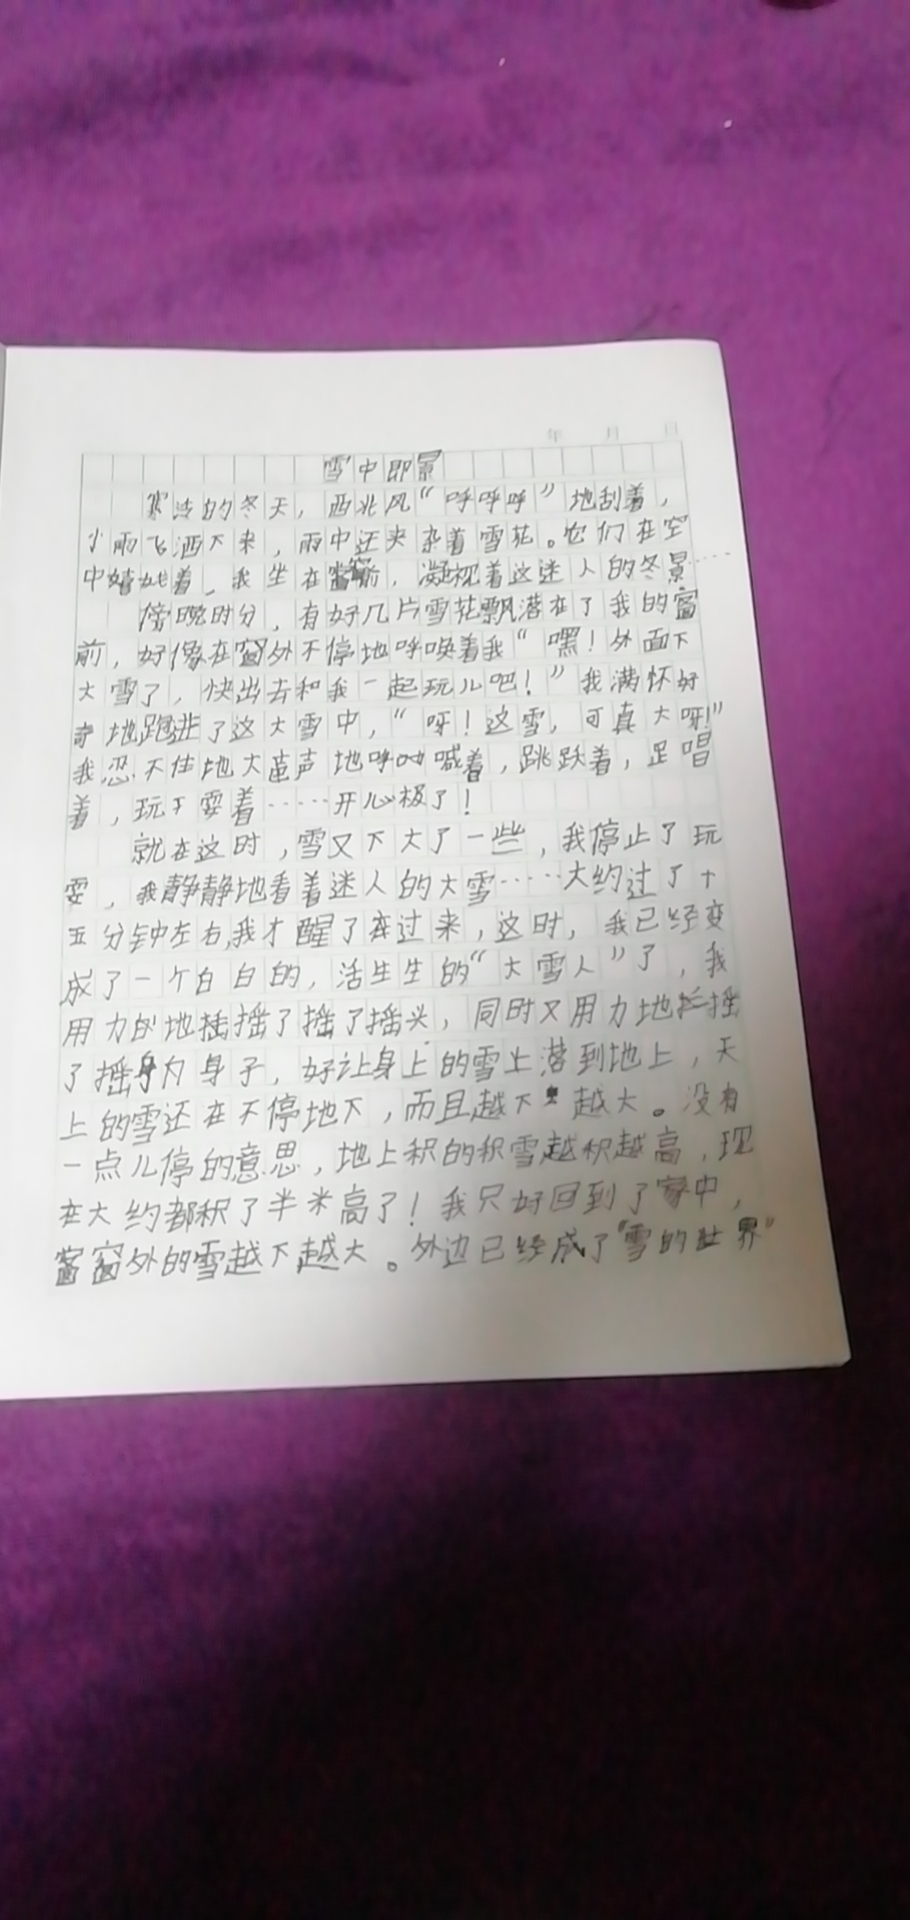 年 月 日
雪中即景
寒冷的冬天，西北风“呼呼呼”地刮着，
小雨飞洒下来，雨中还夹杂着雪花。它们在空
中嬉戏着，我坐在窗前，凝视着这迷人的冬景……
傍晚时分，有好几片雪花飘落在了我的窗
前，好像在窗外不停地呼唤着我“嘿！外面下
大雪了，快出去和我一起玩儿吧！”我满怀好
奇地跑进了这大雪中，“呀！这雪，可真大呀！”
我忍不住地大声地呼喊着，跳跃着，唱
着，玩耍着……开心极了！
就在这时，雪又下大了一些，我停止了玩
耍，我静静地看着迷人的大雪……大约过了十
五分钟左右，我才醒了过来，这时，我已经变
成了一个白白的，活生生的“大雪人”了，我
用力地摇了摇了摇头，同时又用力地摇
了摇身子，好让身上的雪落到地上，天
上的雪还在不停地下，而且越下越大。没有
一点儿停的意思，地上积的积雪越积越高，现
在大约都积了半米高了！我只好回到了家中，
窗外的雪越下越大。外边已经成了“雪的世界”